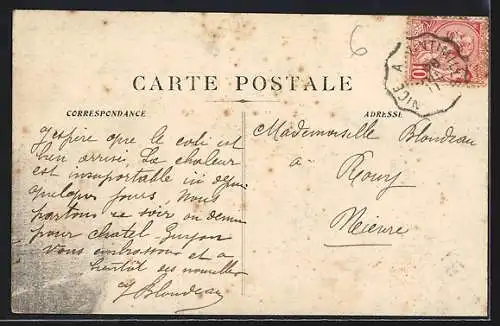 6
CARTE POSTALE
CORRESPONDANCE
ADRESSE
NICE A VINTIMILLE
10
J'espère que le colis est
bien arrivé. La chaleur
est insuportable ici depuis
quelques jours. Nous
partons ce soir ou demain
pour chatel Guyon
Vous embrassons et a
bientôt des nouvelles
Blondeau
Mademoiselle Blondeau
à
Rouy
Nièvre